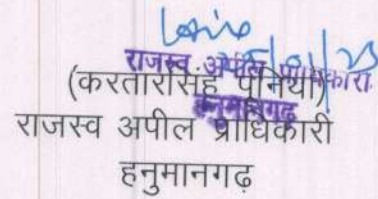 राजस्व अपील प्राधिकारी
हनुमानगढ़
(करतारसिंह पूनिया)
राजस्व अपील प्राधिकारी
हनुमानगढ़